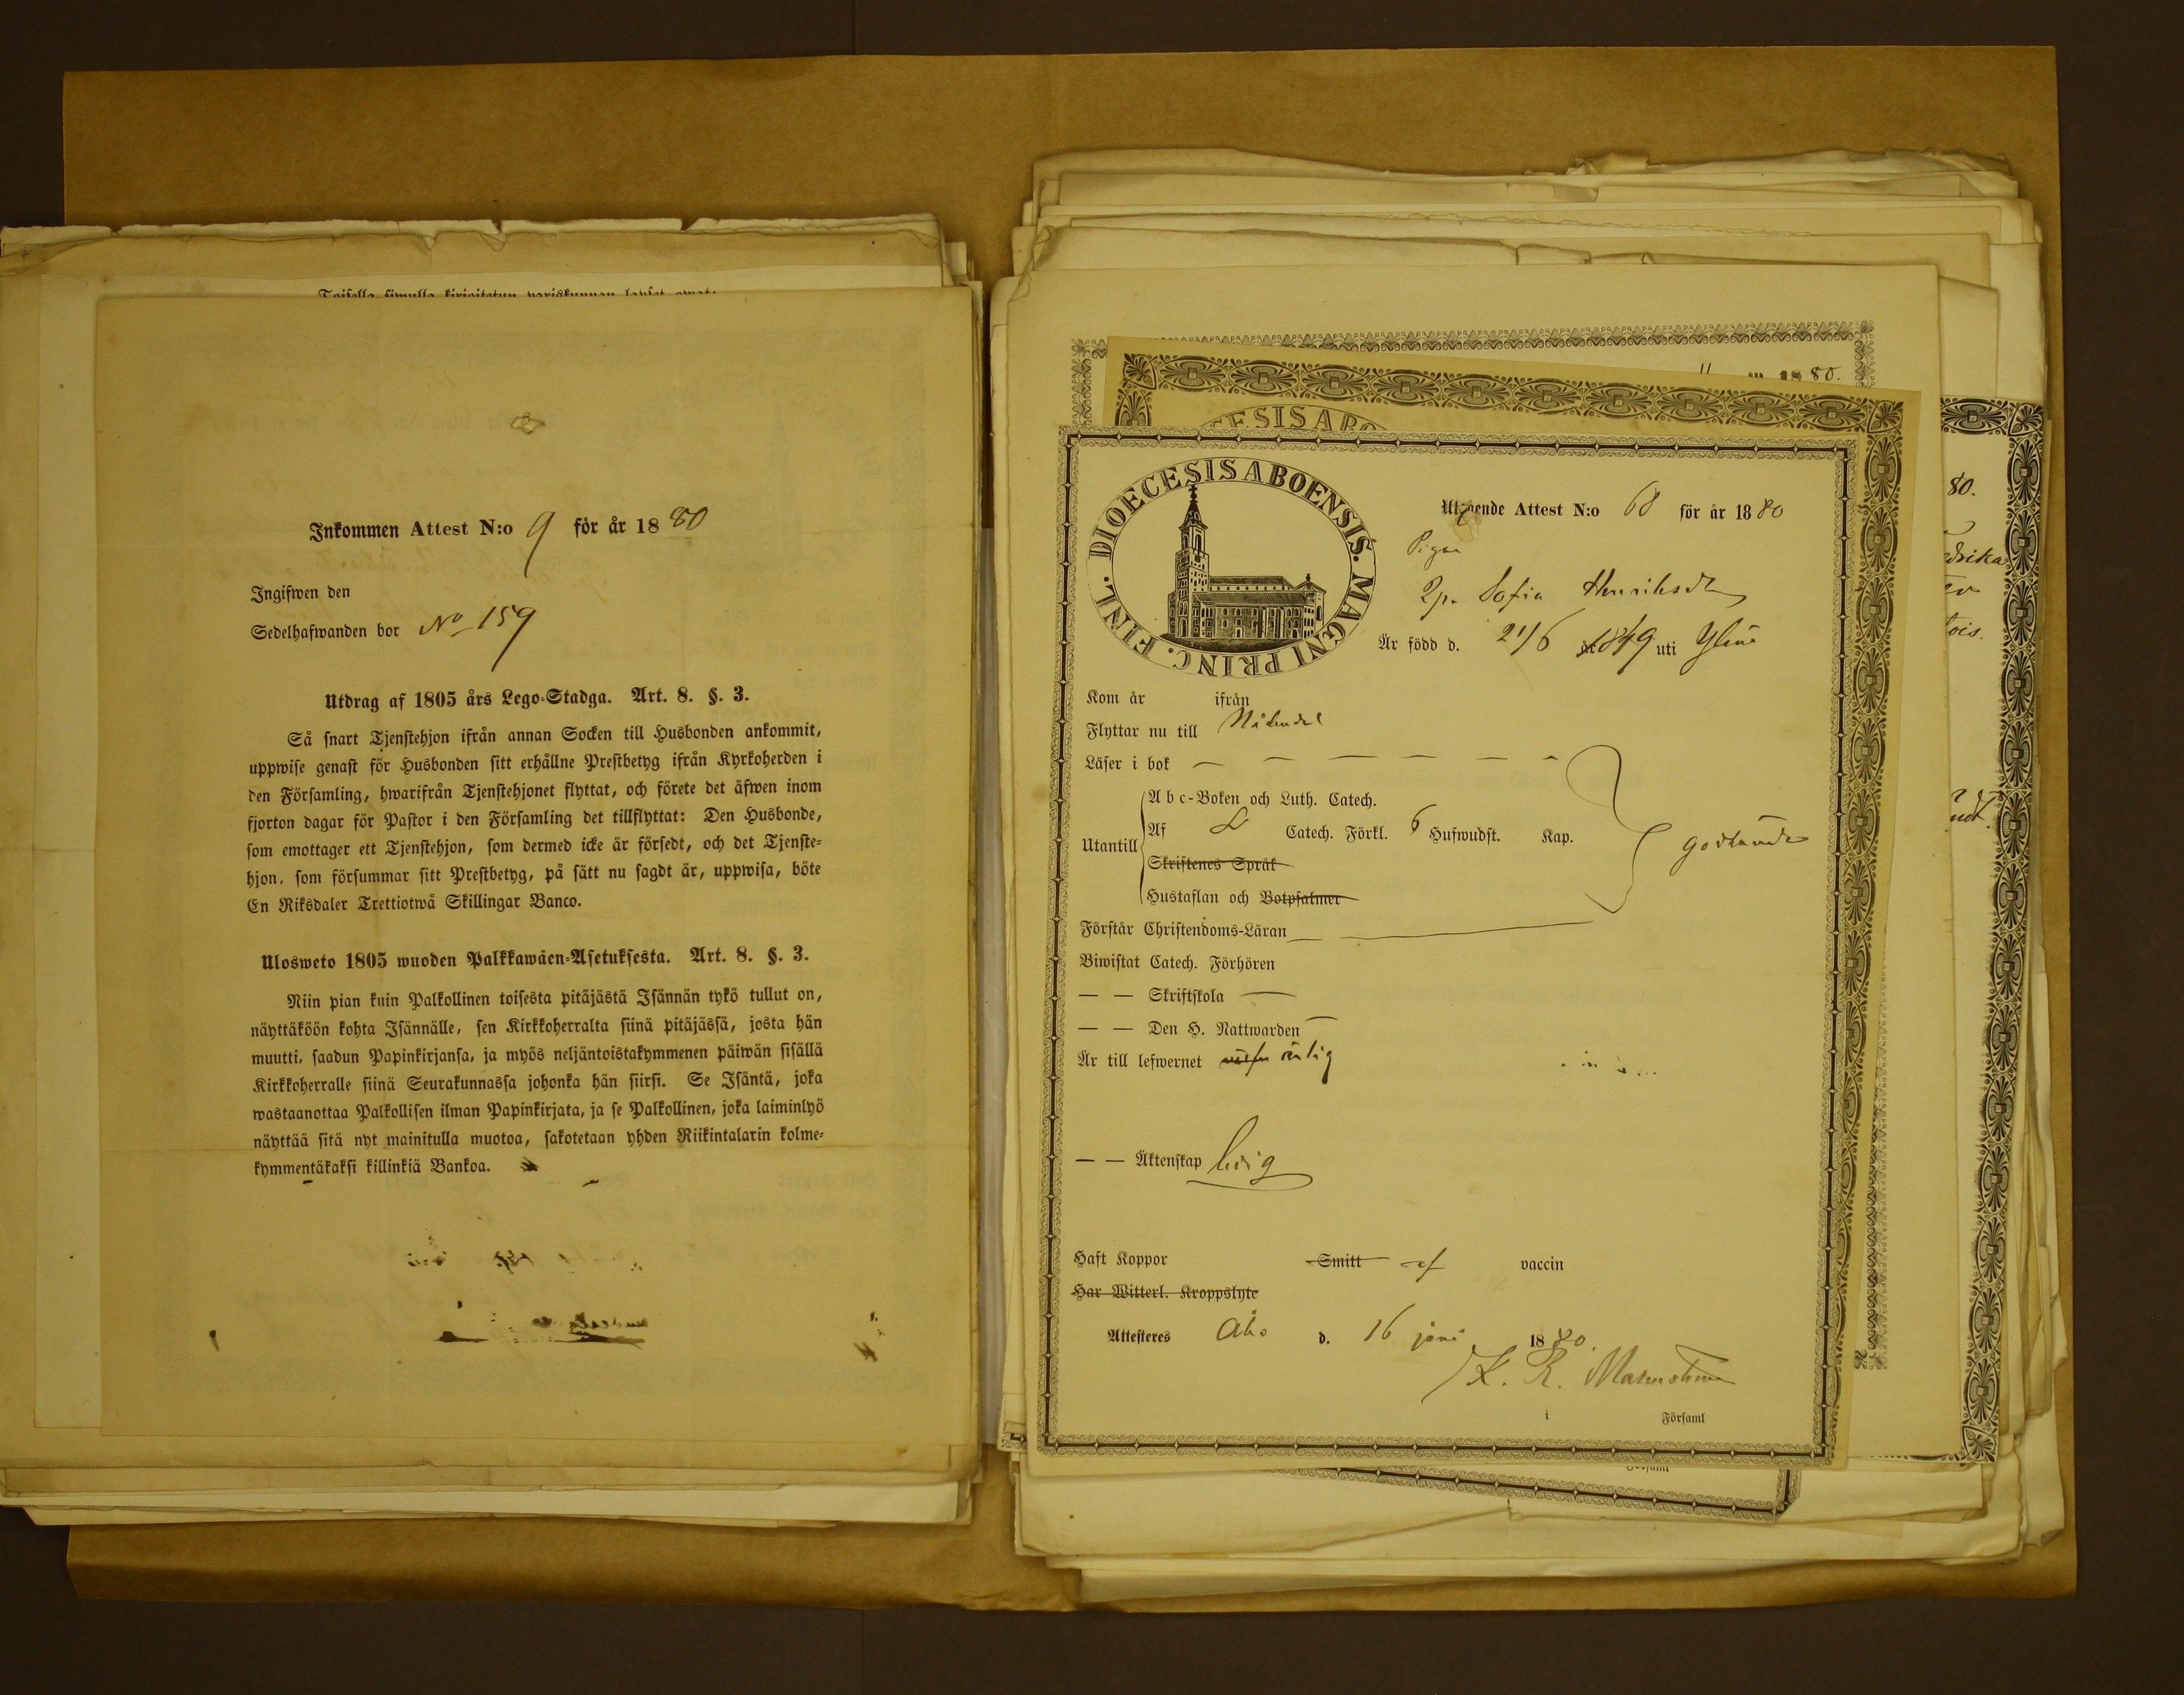 Inkommen Attest N:o 9 för år 1880
Ingifwen den
Sedelhafwanden bor No 159
Utdrag af 1805 års Lego-Stadga. Art. 8. §. 3.
Så snart Tjenstehjon ifrån annan Socken till Husbonden ankommit,
uppwise genast för Husbonden sitt erhållne Prestbetyg ifrån Kyrkoherden i
den Församling, hwarifrån Tjenstehjonet flyttat, och förete det äfwen inom
fjorton dagar för Pastor i den Församling det tillflyttat: Den Husbonde,
som emottager ett Tjenstehjon, som dermed icke är försedt, och det Tjenste-
hjon, som försummar sitt Prestbetyg, på sätt nu sagdt är, uppwisa, böte
En Riksdaler Trettiotwå Skillingar Banco.
Ulosweto 1805 wuoden Palkkawäen-Asetuksesta. Art. 8. §. 3.
Niin pian kuin Palkollinen toisesta pitäjästä Isännän tykö tullut on,
näyttäköön kohta Isännälle, sen Kirkkoherralta siinä pitäjässä, josta hän
muutti, saadun Papinkirjansa, ja myös neljäntoistakymmenen päiwän sisällä
Kirkkoherralle siinä Seurakunnassa johonka hän siirsi. Se Isäntä, joka
wastaanottaa Palkollisen ilman Papinkirjata, ja se Palkollinen, joka laiminlyö
näyttää sitä nyt mainitulla muotoa, sakotetaan yhden Riikintalarin kolme-
kymmentäkaksi killinkiä Bankoa.
1880.
ESIS ABO
80.
DIOECESIS ABOENSIS. MAGNI PRINC. FINL.
Utgående Attest N:o 68 för år 1880
Pigan
Sofia Henriksdr
Är född d. 21/6 1849 uti Yläne
Kom år ifrån
Flyttar nu till Nådendal
Läser i bok
Utantill
Abc-Boken och Luth. Catech.
Af Catech. Förkl. 6 Hufwudst. Kap.
Skriftenes Språk
Hustaflan och Botpsalmer
godkända
Förstår Christendoms-Läran
Biwistat Catech. Förhören
— — Skriftskola
— — Den H. Nattwarden
Är till lefwernet ärlig
— — Äktenskap ledig
Haft Koppor Smitt af vaccin
Har Witterl. Kroppslyte
Attesteres Åbo d. 16 juni 1880.
K. R. Malmström
i Församl